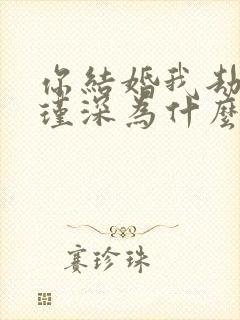 你結婚我劫
瑾深為什麼
賽珍珠